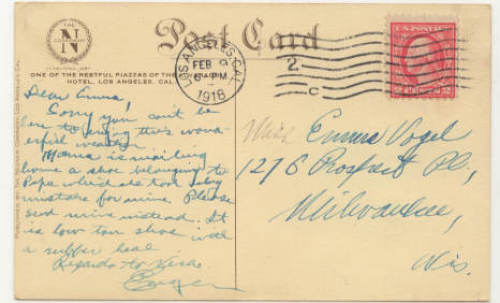 Post Card
THE
N
ONE OF THE RESTFUL PIAZZAS OF THE
HOTEL, LOS ANGELES, CAL.
LOS ANGELES, CAL.
FEB 9
6 PM
1916
2
C
Dear Emma:
Sorry you can't be
here to enjoy this wond-
erful weather.
Mama is mailing
home a shoe belonging to
Papa which she took by
mistake for mine. Please
send mine instead. It
is low tan shoe with
a rubber heel
Regards to
Miss Emma Vogel
1276 Prospect Pl.,
Milwaukee,
Wis.